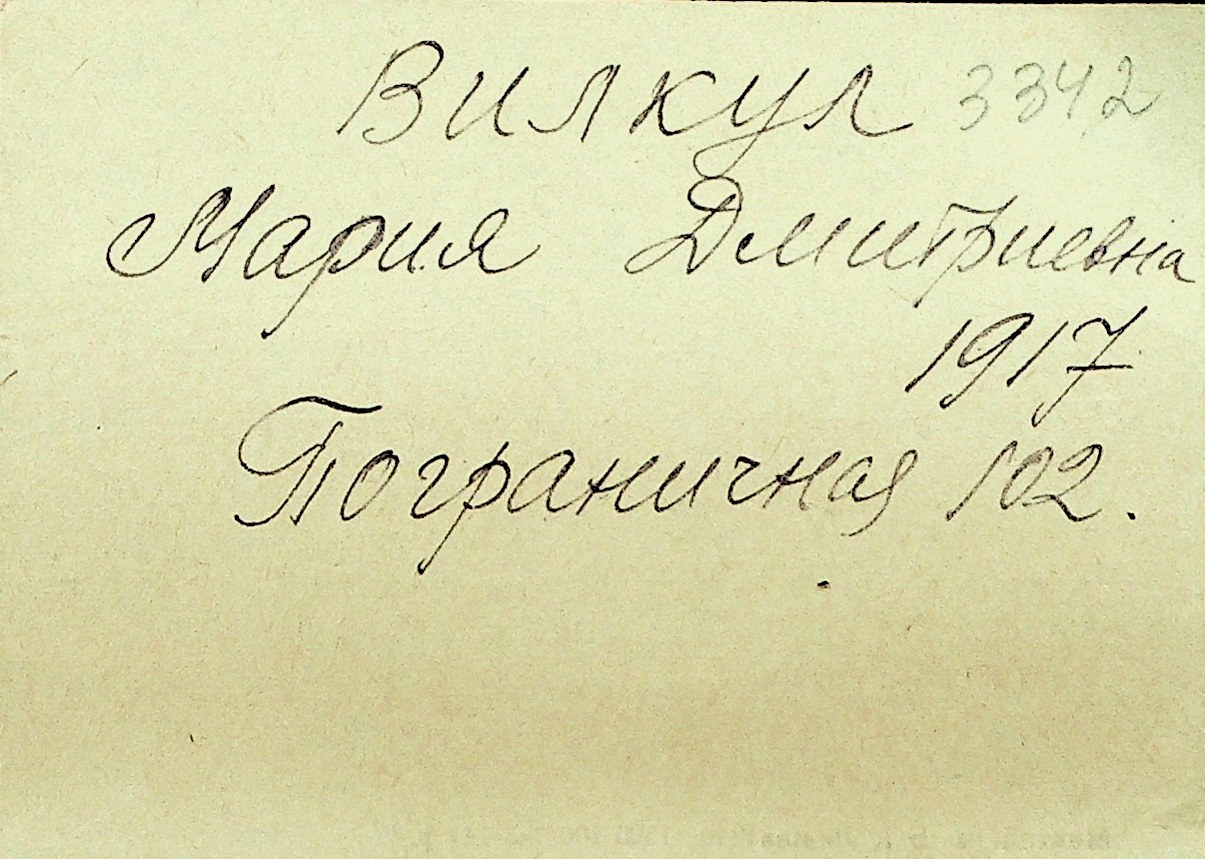 Вилкул 3342
Мария Дмитриевна
1917
Пограничная 102.